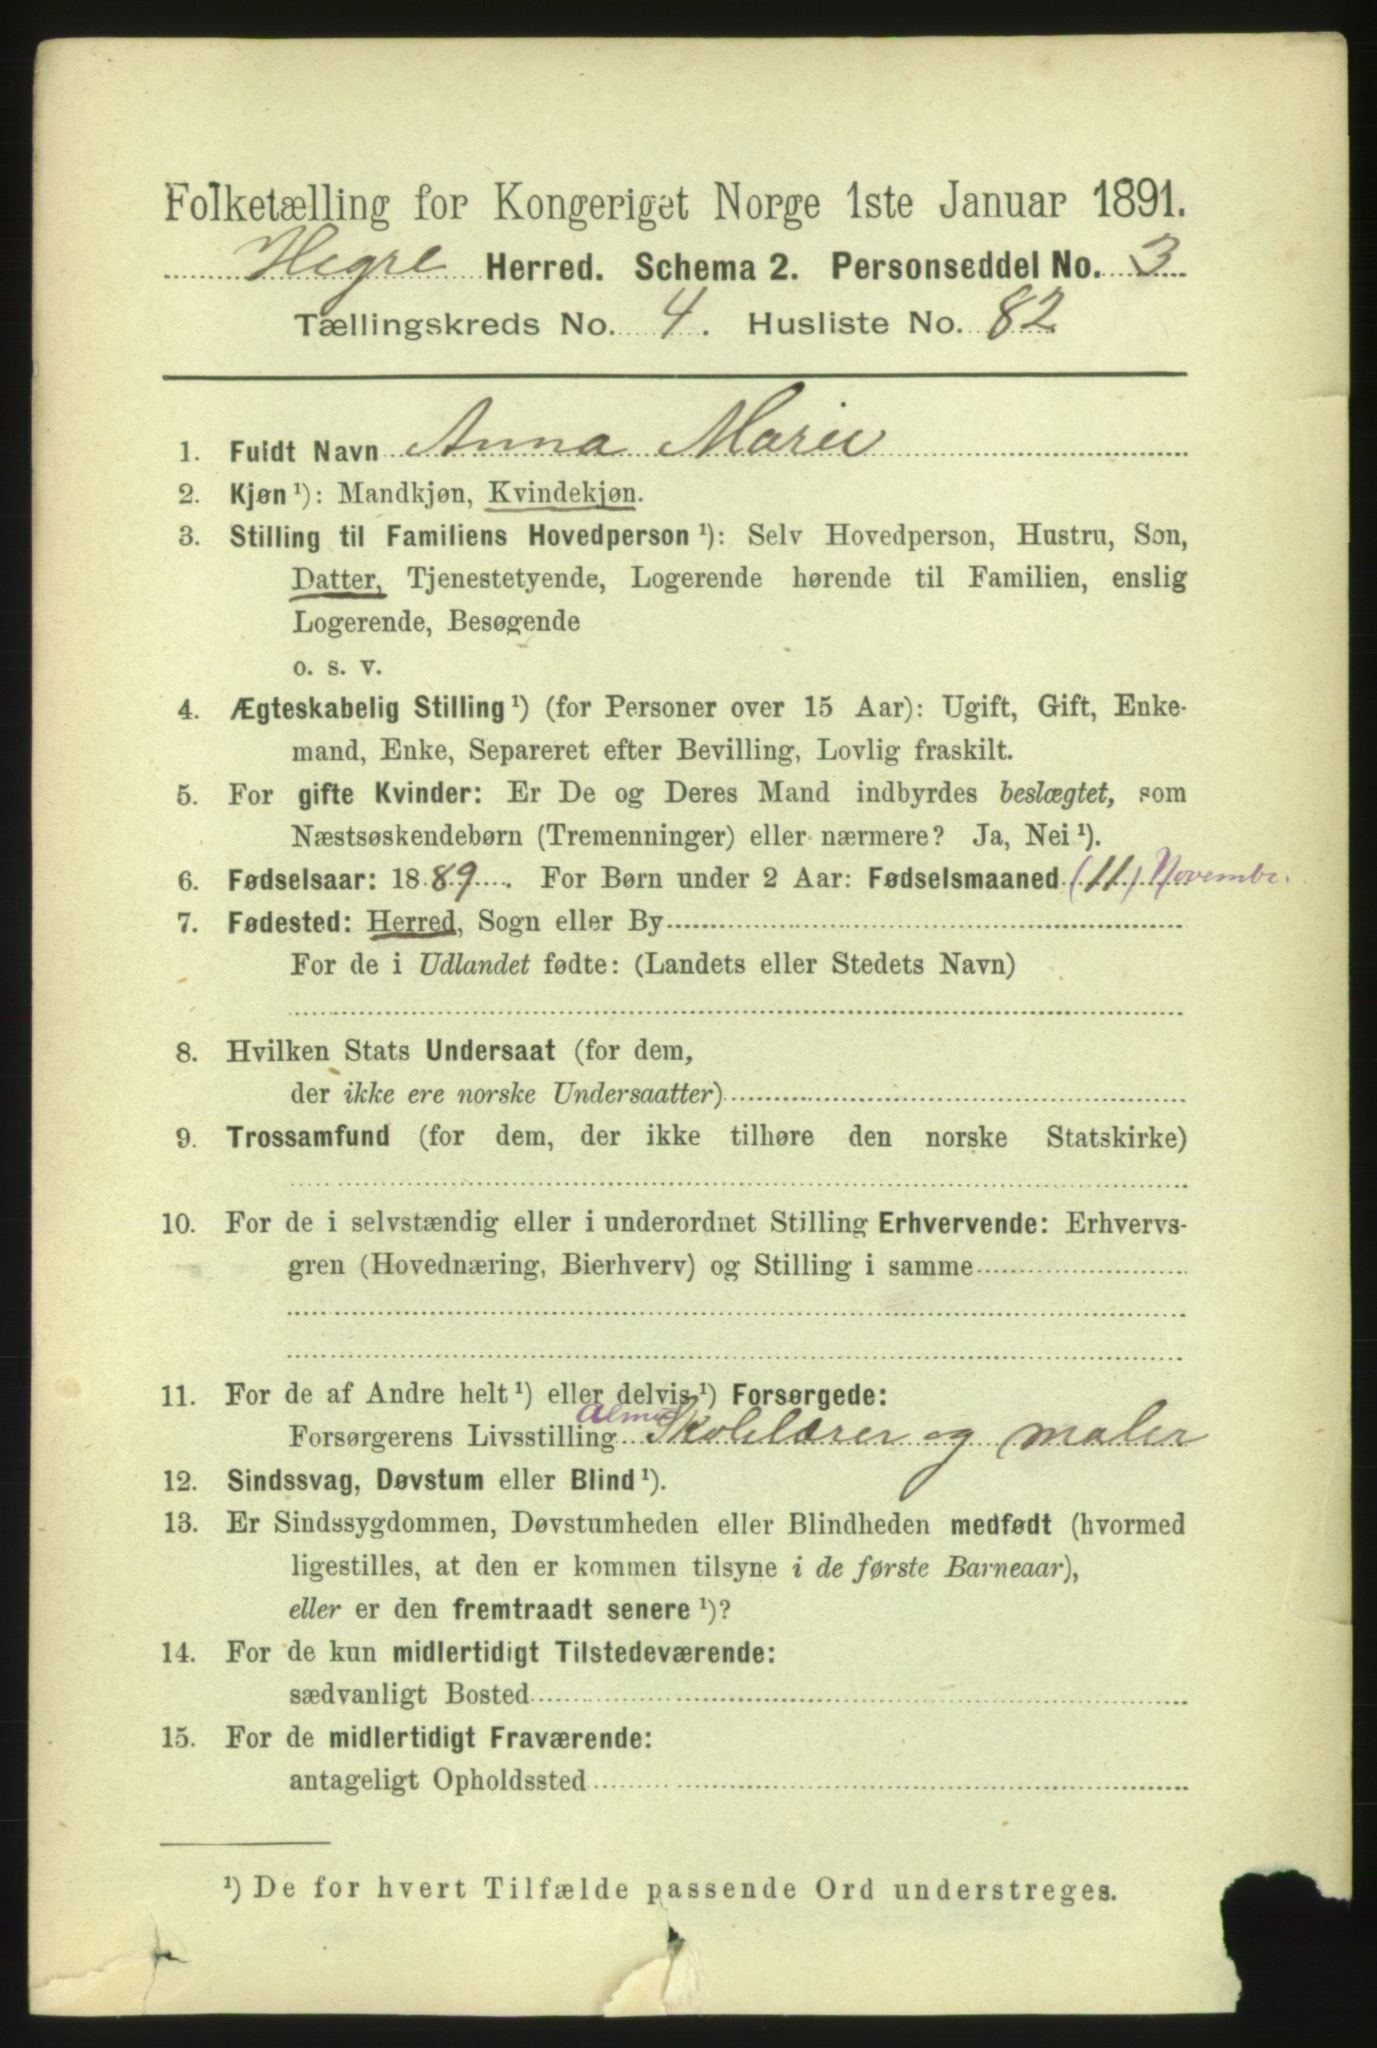 Folketælling for Kongeriget Norge 1ste Januar 1891.
Hegre Herred. Schema 2. Personseddel No. 3
Tællingskreds No. 4. Husliste No. 82
1. Fuldt Navn Anna Marie
2. Kjøn ¹): Mandkjøn, Kvindekjøn.
3. Stilling til Familiens Hovedperson ¹): Selv Hovedperson, Hustru, Søn,
Datter, Tjenestetyende, Logerende hørende til Familien, enslig
Logerende, Besøgende
o. s. v.
4. Ægteskabelig Stilling ¹) (for Personer over 15 Aar): Ugift, Gift, Enke-
mand, Enke, Separeret efter Bevilling, Lovlig fraskilt.
5. For gifte Kvinder: Er De og Deres Mand indbyrdes beslægtet, som
Næstsøskendebørn (Tremenninger) eller nærmere? Ja, Nei ¹).
6. Fødselsaar: 1889. For Børn under 2 Aar: Fødselsmaaned (11) Novembr.
7. Fødested: Herred, Sogn eller By
For de i Udlandet fødte: (Landets eller Stedets Navn)
8. Hvilken Stats Undersaat (for dem,
der ikke ere norske Undersaatter)
9. Trossamfund (for dem, der ikke tilhøre den norske Statskirke)
10. For de i selvstændig eller i underordnet Stilling Erhvervende: Erhvervs-
gren (Hovednæring, Bierhverv) og Stilling i samme
11. For de af Andre helt ¹) eller delvis ¹) Forsørgede:
Forsørgerens Livsstilling Almu Skolelærer og maler
12. Sindssvag, Døvstum eller Blind ¹).
13. Er Sindssygdommen, Døvstumheden eller Blindheden medfødt (hvormed
ligestilles, at den er kommen tilsyne i de første Barneaar),
eller er den fremtraadt senere ¹)?
14. For de kun midlertidigt Tilstedeværende:
sædvanligt Bosted
15. For de midlertidigt Fraværende:
antageligt Opholdssted
¹) De for hvert Tilfælde passende Ord understreges.